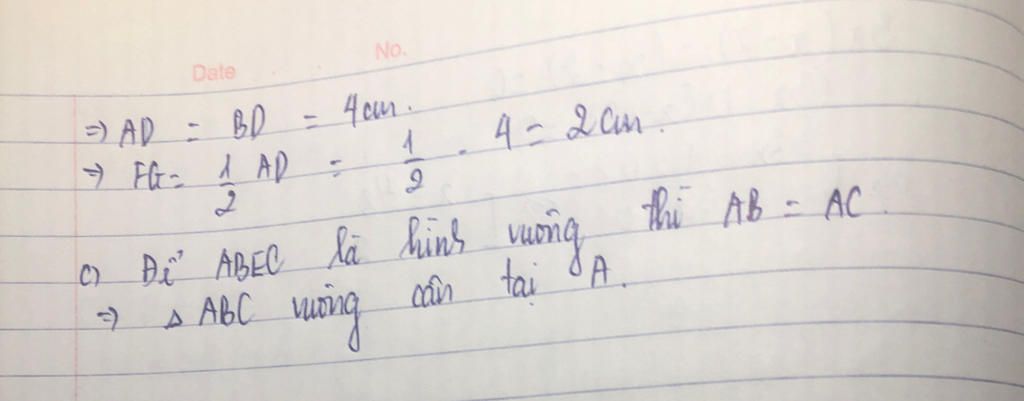 Date No.
⇒ AD = BD = 4cm.
⇒ FG = 1/2 AD = 1/2 . 4 = 2cm.
c) Để ABEC là hình vuông thì AB = AC.
⇒ △ ABC vuông cân tại A.